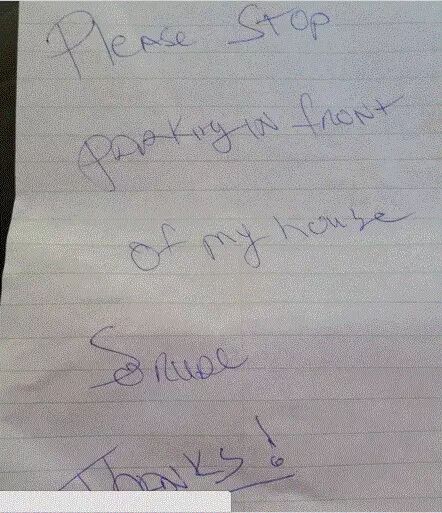 Please Stop
parking in front
of my house
So rude
Thanks!